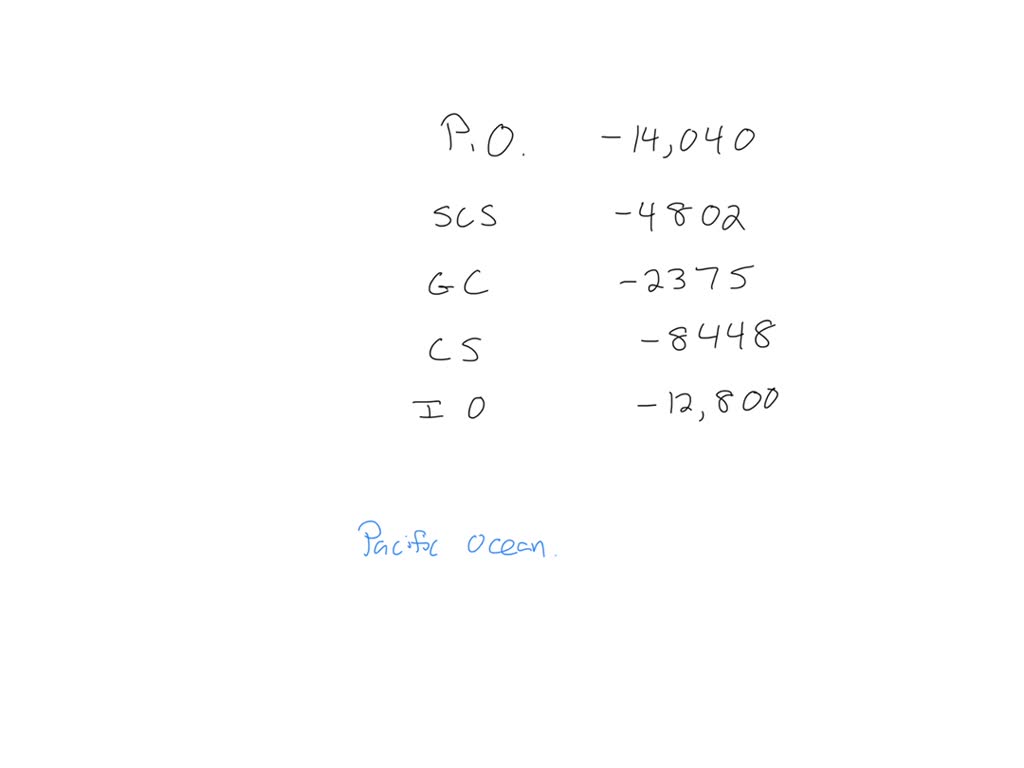 P.O. -14,040
SCS -4802
GC -2375
CS -8448
IO -12,800
Pacific Ocean.